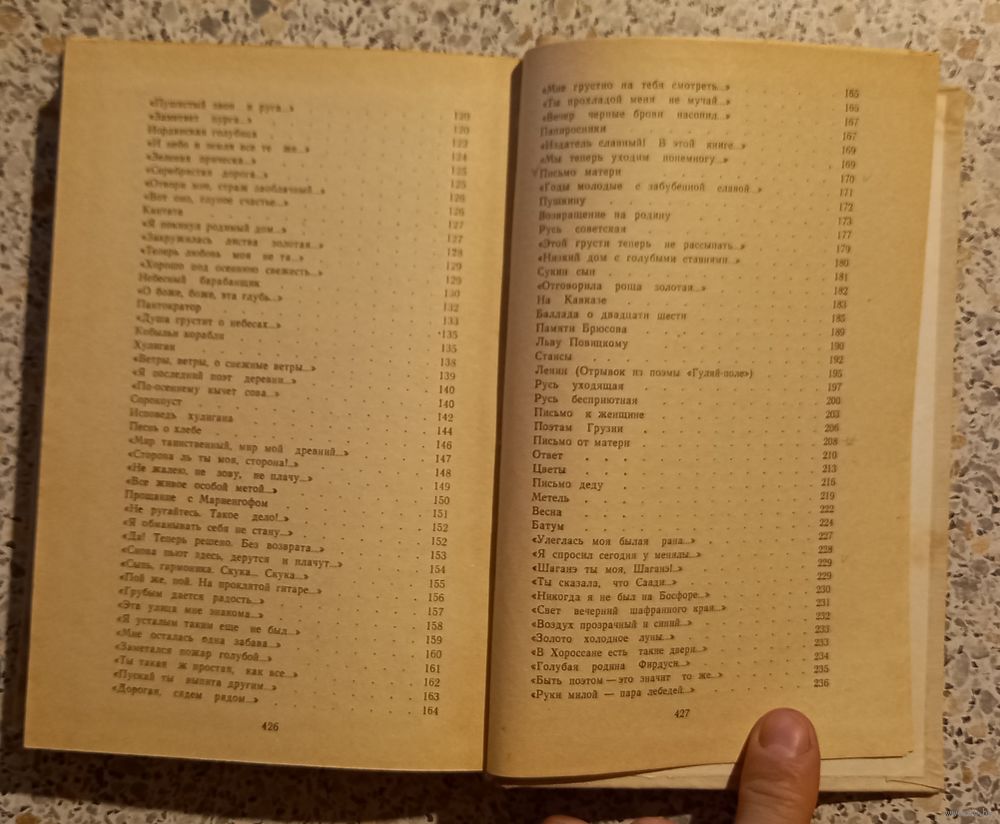 «Пушистый звон и руга...» 120
«Заметает пурга...» 120
Иорданская голубица 122
«И небо и земля все те же...» 124
«Зеленая прическа...» 125
«Серебристая дорога...» 125
«Отвори мне, страж заоблачный...» 126
«Вот оно, глупое счастье...» 126
Кантата 127
«Я покинул родимый дом...» 127
«Закружилась листва золотая...» 128
«Теперь любовь моя не та...» 129
«Хорошо под осеннюю свежесть...» 129
Небесный барабанщик 130
«О боже, боже, эта глубь...» 132
Пантократор 133
«Душа грустит о небесах...» 135
Кобыльи корабли 135
Хулиган 138
«Ветры, ветры, о снежные ветры...» 139
«Я последний поэт деревни...» 140
«По-осеннему кычет сова...» 140
Сорокоуст 142
Исповедь хулигана 144
Песнь о хлебе 146
«Мир таинственный, мир мой древний...» 147
«Сторона ль ты моя, сторона!..» 148
«Не жалею, не зову, не плачу...» 149
«Все живое особой метой...» 150
Прощание с Мариенгофом 151
«Не ругайтесь. Такое дело!..» 152
«Я обманывать себя не стану...» 152
«Да! Теперь решено. Без возврата...» 153
«Снова пьют здесь, дерутся и плачут...» 154
«Сыпь, гармоника. Скука... Скука...» 155
«Пой же, пой. На проклятой гитаре...» 156
«Грубым дается радость...» 157
«Эта улица мне знакома...» 158
«Я усталым таким еще не был...» 159
«Мне осталась одна забава...» 160
«Заметался пожар голубой...» 161
«Ты такая ж простая, как все...» 162
«Пускай ты выпита другим...» 163
«Дорогая, сядем рядом...» 164
426
«Мне грустно на тебя смотреть...» 165
«Ты прохладой меня не мучай...» 165
«Вечер черные брови насопил...» 167
Папиросники 167
«Издатель славный! В этой книге...» 169
«Мы теперь уходим понемногу...» 169
Письмо матери 170
«Годы молодые с забубенной славой...» 171
Пушкину 172
Возвращение на родину 173
Русь советская 177
«Этой грусти теперь не рассыпать...» 179
«Низкий дом с голубыми ставнями...» 180
Сукин сын 181
«Отговорила роща золотая...» 182
На Кавказе 183
Баллада о двадцати шести 185
Памяти Брюсова 189
Льву Повицкому 190
Стансы 192
Ленин (Отрывок из поэмы «Гуляй-поле») 195
Русь уходящая 197
Русь бесприютная 200
Письмо к женщине 203
Поэтам Грузии 206
Письмо от матери 208
Ответ 210
Цветы 213
Письмо деду 216
Метель 219
Весна 222
Батум 224
«Улеглась моя былая рана...» 227
«Я спросил сегодня у менялы...» 228
«Шаганэ ты моя, Шаганэ!..» 229
«Ты сказала, что Саади...» 229
«Никогда я не был на Босфоре...» 230
«Свет вечерний шафранного края...» 231
«Воздух прозрачный и синий...» 232
«Золото холодное луны...» 233
«В Хороссане есть такие двери...» 233
«Голубая родина Фирдуси...» 234
«Быть поэтом — это значит то же...» 235
«Руки милой — пара лебедей...» 236
427